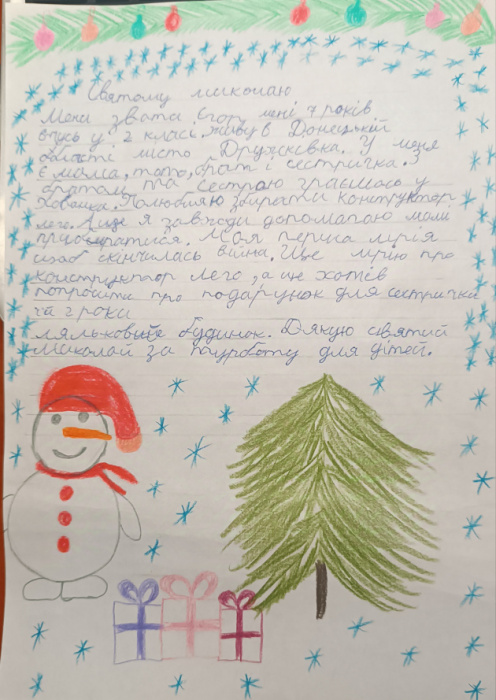 Святому Миколаю
Мене звати Єгор мені 7 років
вчусь у 2 класі. живу в Донецькій
області місто Дружківка. У мене
є мама, тато, брат і сестричка. З
братом та сестрою граємось у
Хованки. Полюбляю збирати конструктор
лего. А ще я завжди допомагаю мамі
прибиратися. Моя перша мрія
щоб скінчилась війна. Ще мрію про
конструктор лего, а ще хотів
попросити про подарунок для сестрички
їй 2 роки
ляльковый будинок. Дякую святий
Миколай за турботу для дітей.